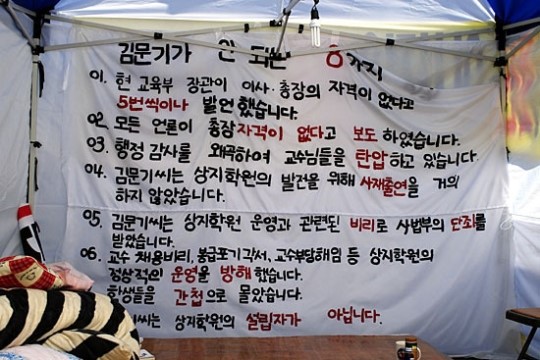 김문기가 안 되는 8가지
01. 현 교육부 장관이 이사·총장의 자격이 없다고
5번씩이나 발언했습니다.
02. 모든 언론이 총장자격이 없다고 보도 하였습니다.
03. 행정 감사를 왜곡하여 교수님들을 탄압하고 있습니다.
04. 김문기씨는 상지학원의 발전을 위해 사재출연을 거의
하지 않았습니다.
05. 김문기씨는 상지학원 운영과 관련된 비리로 사법부의 단죄를
받았습니다.
06. 교수 채용비리, 봉급포기각서, 교수부당해임 등 상지학원의
정상적인 운영을 방해했습니다.
학생들을 간첩으로 몰았습니다.
씨는 상지학원의 설립자가 아닙니다.